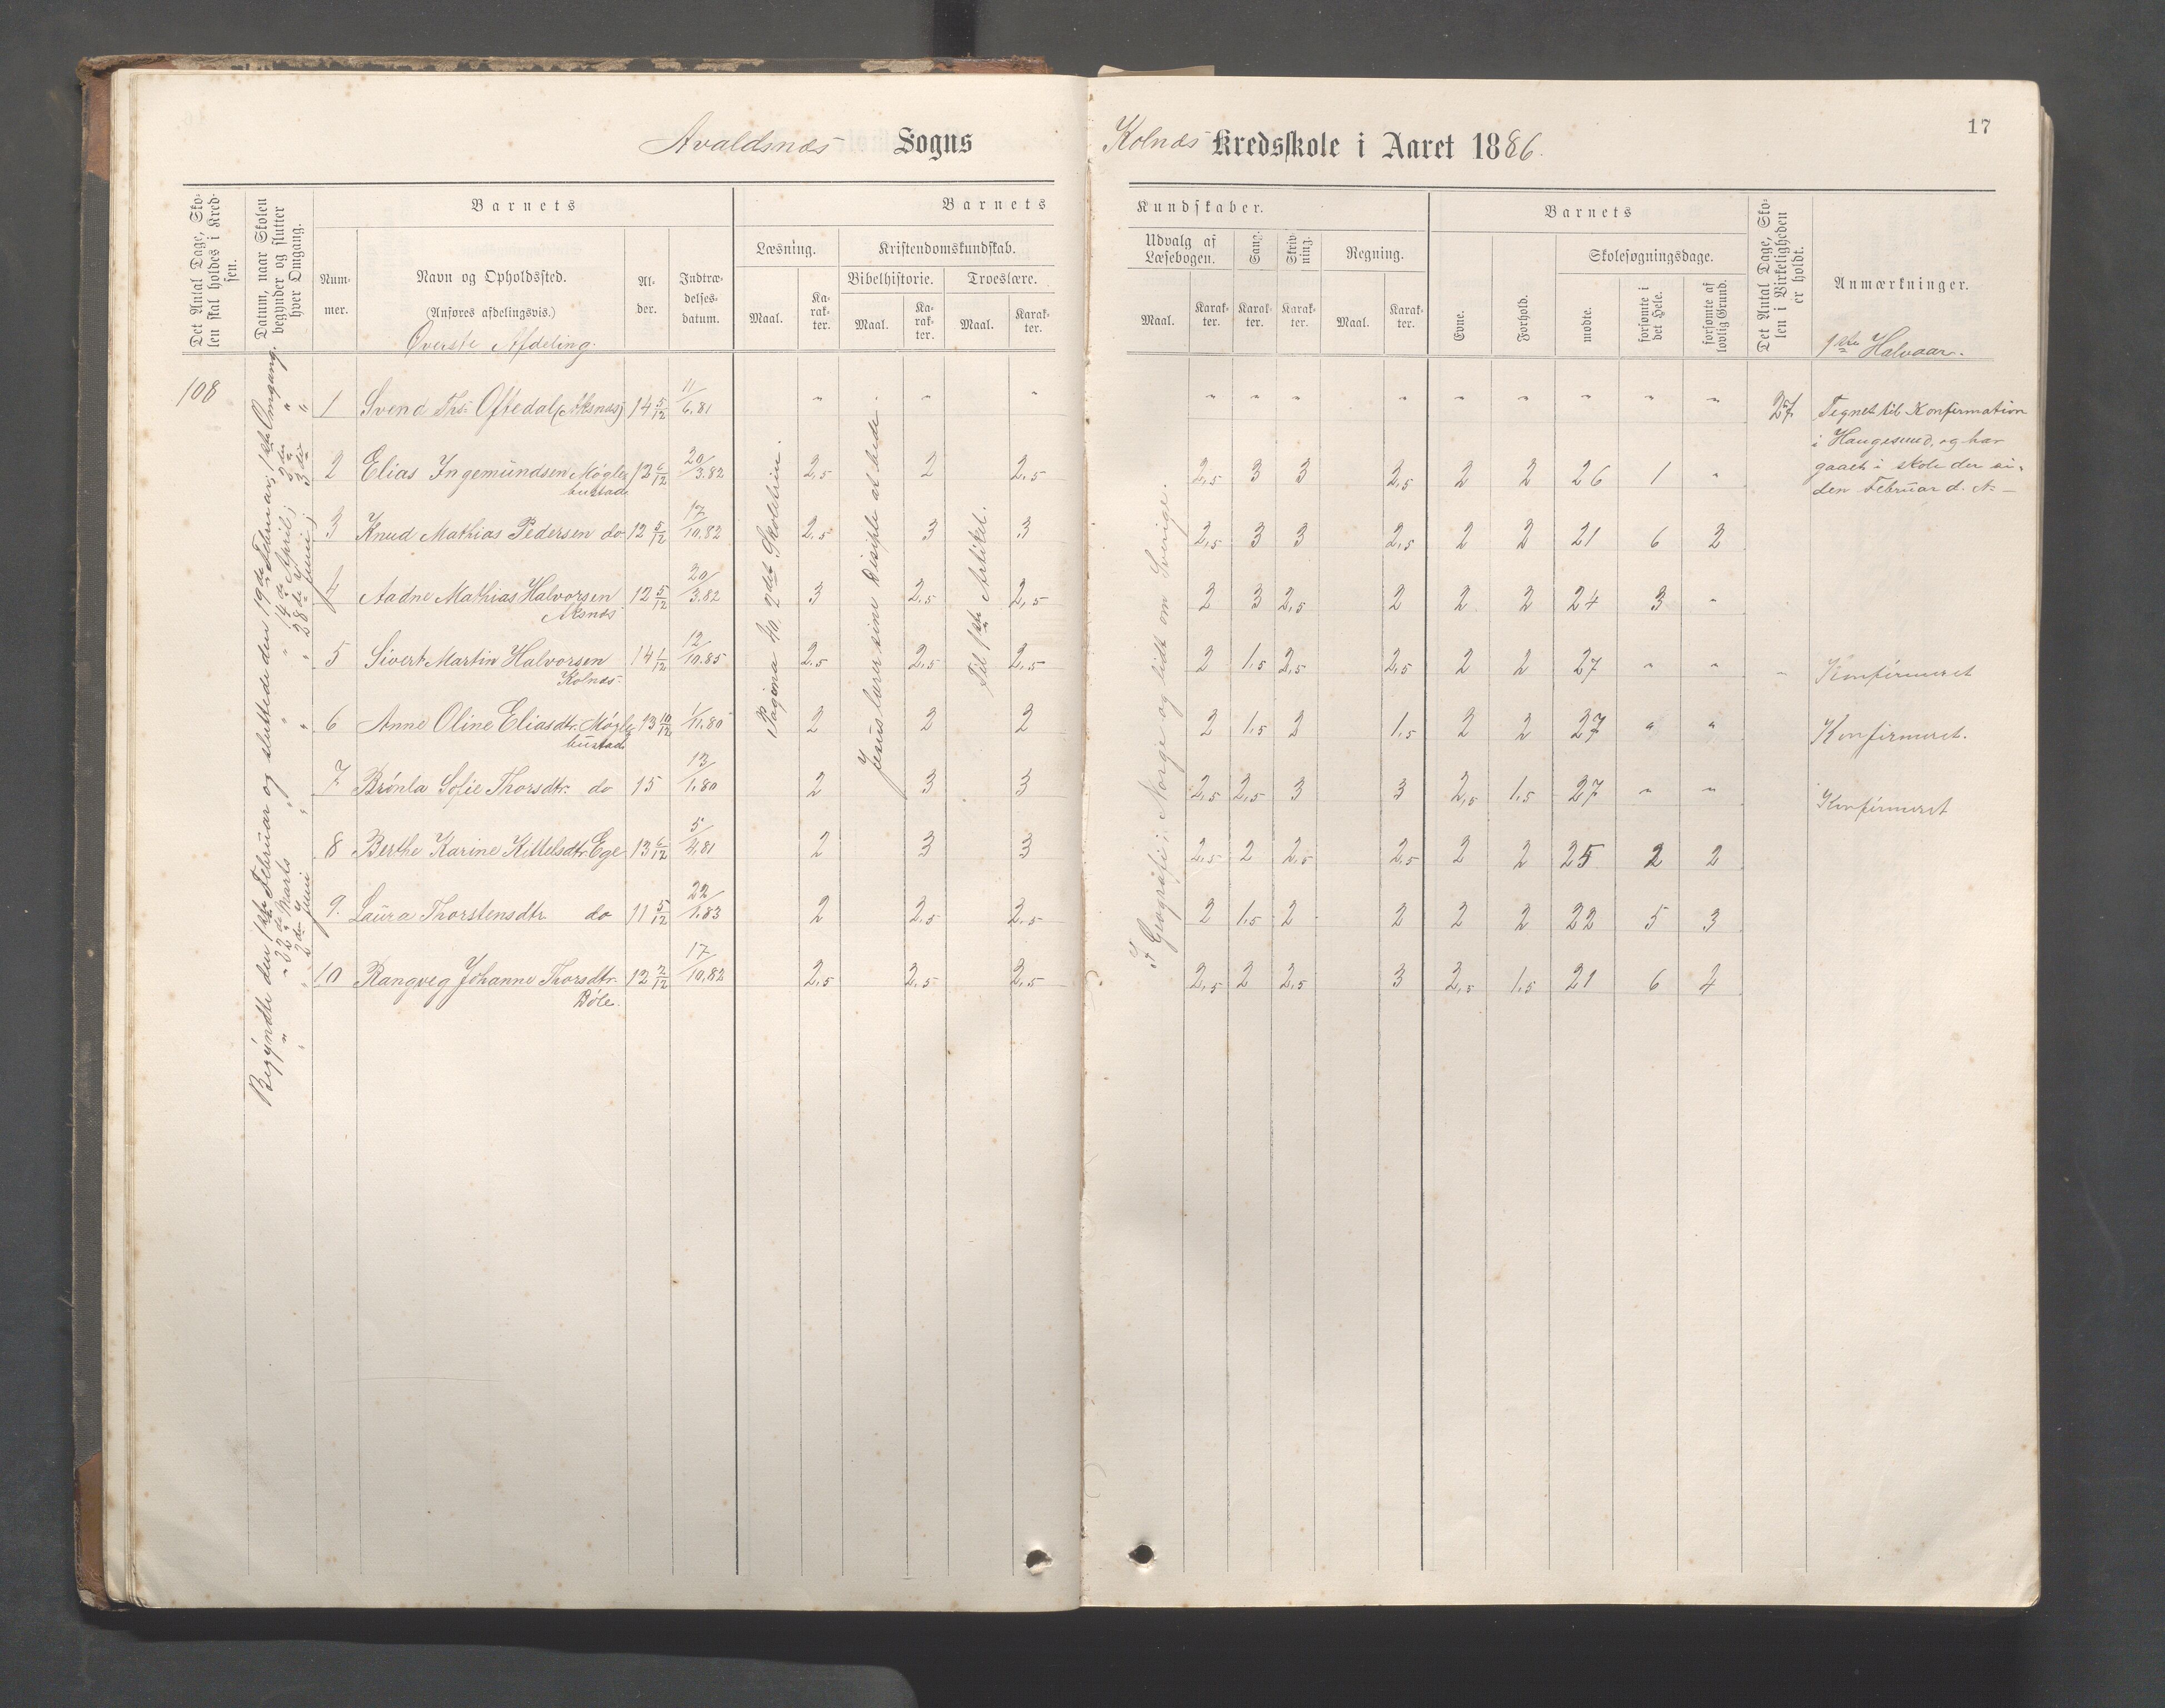 Avaldsnæs Sogns
Kolnæs Kredsskole i Aaret 1886.
17
Det Antal Dage, Skolen skal holdes i Kredsen.
Datum, naar Skolen begynder og slutter hver Omgang.
Barnets
Nummer.
Navn og Opholdssted.
(Anføres afdelingsvis.)
Øverste Afdeling.
Alder.
Indtrædelsesdatum.
Barnets Kundskaber.
Læsning.
Maal.
Karakter.
Kristendomskundskab.
Bibelhistorie.
Maal.
Karakter.
Troeslære.
Maal.
Karakter.
Udvalg af Læsebogen.
Maal.
Karakter.
Sang.
Karakter.
Skrivning.
Karakter.
Regning.
Maal.
Karakter.
Barnets
Evne.
Forhold.
Skolesøgningsdage.
mødte.
forsømte i det Hele.
forsømte af lovlig Grund.
Det Antal Dage, Skolen i Virkeligheden er holdt.
Anmærkninger.
1ste Halvaar.
108
Begyndte den 1ste Februar og sluttede den 19de Februar; 1ste Omgang.
" " 22de Marts " " " 14de April; 2den "
" " 2den Juni " " " 28de Juni; 3die "
Pagina 40. 2det Skoletrin.
Jesus lærer sine Disiple at bede.
Til 1ste Artikel.
I Geografi: Norge og lidt om Sverige.
1 Svend Ths. Oftedal (Aksnæs) 14 5/12 11/6.81 " " " " " " " " " " " " 27 Tegnet til Konfirmation
i Haugesund, og har
gaaet i skole der si-
den Februar d. A.
2 Elias Ingemundsen Møgle- 13 6/12 20/3.82 2,5 2 2,5 2,5 3 3 2,5 2 2 26 1 "
bustad
3 Knud Mathias Pedersen do 12 5/12 17/10.82 2,5 3 3 2,5 3 3 2,5 2 2 21 6 2
4 Aadne Mathias Halvorsen 12 5/12 20/3.82 3 2,5 2,5 2 3 2,5 2 2 2 24 3 "
Aksnæs
5 Sivert Martin Halvorsen 14 1/12 12/10.85 2,5 2,5 2,5 2 1,5 2,5 2,5 2 2 27 " " " Konfirmeret
Kolnæs
6 Anne Oline Eliasdtr. Møgle- 13 10/12 1/11.80 2 2 2 2 1,5 2 1,5 2 2 27 " " Konfirmeret.
bustad
7 Brønla Sofie Thorsdtr. do 15 13/1.80 2 3 3 2,5 2,5 3 3 2,5 1,5 27 " " Konfirmeret
8 Berthe Karine Kittelsdtr. Ege 13 6/12 5/4.81 2 3 3 2,5 2 2,5 2,5 2 2 25 2 2
9. Laura Thorstensdtr do 11 5/12 22/1.83 2 2,5 2,5 2 1,5 2 2 2 2 22 5 3
10 Rangveg Johanne Thorsdtr. 12 2/12 17/10.82 2,5 2,5 2,5 2,5 2 2,5 3 2,5 1,5 21 6 4
Bøle.